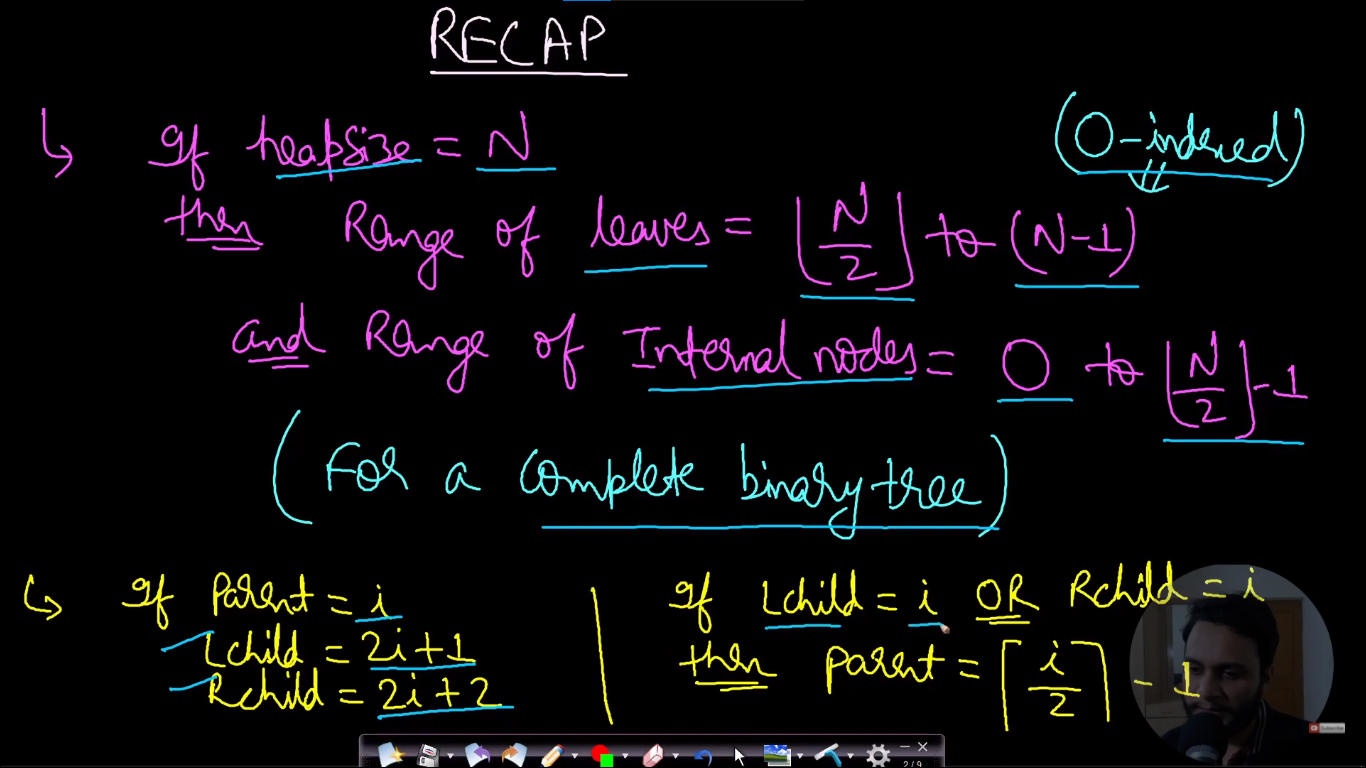 RECAP
(0-indexed)
If heapsize = N
then Range of leaves = ⌊N/2⌋ to (N-1)
and Range of Internal nodes = 0 to ⌊N/2⌋ -1
(For a complete binary tree)
If Parent = i
Lchild = 2i+1
Rchild = 2i+2
If Lchild = i OR Rchild = i
then parent = ⌈i/2⌉ - 1
Subscribe
2/9